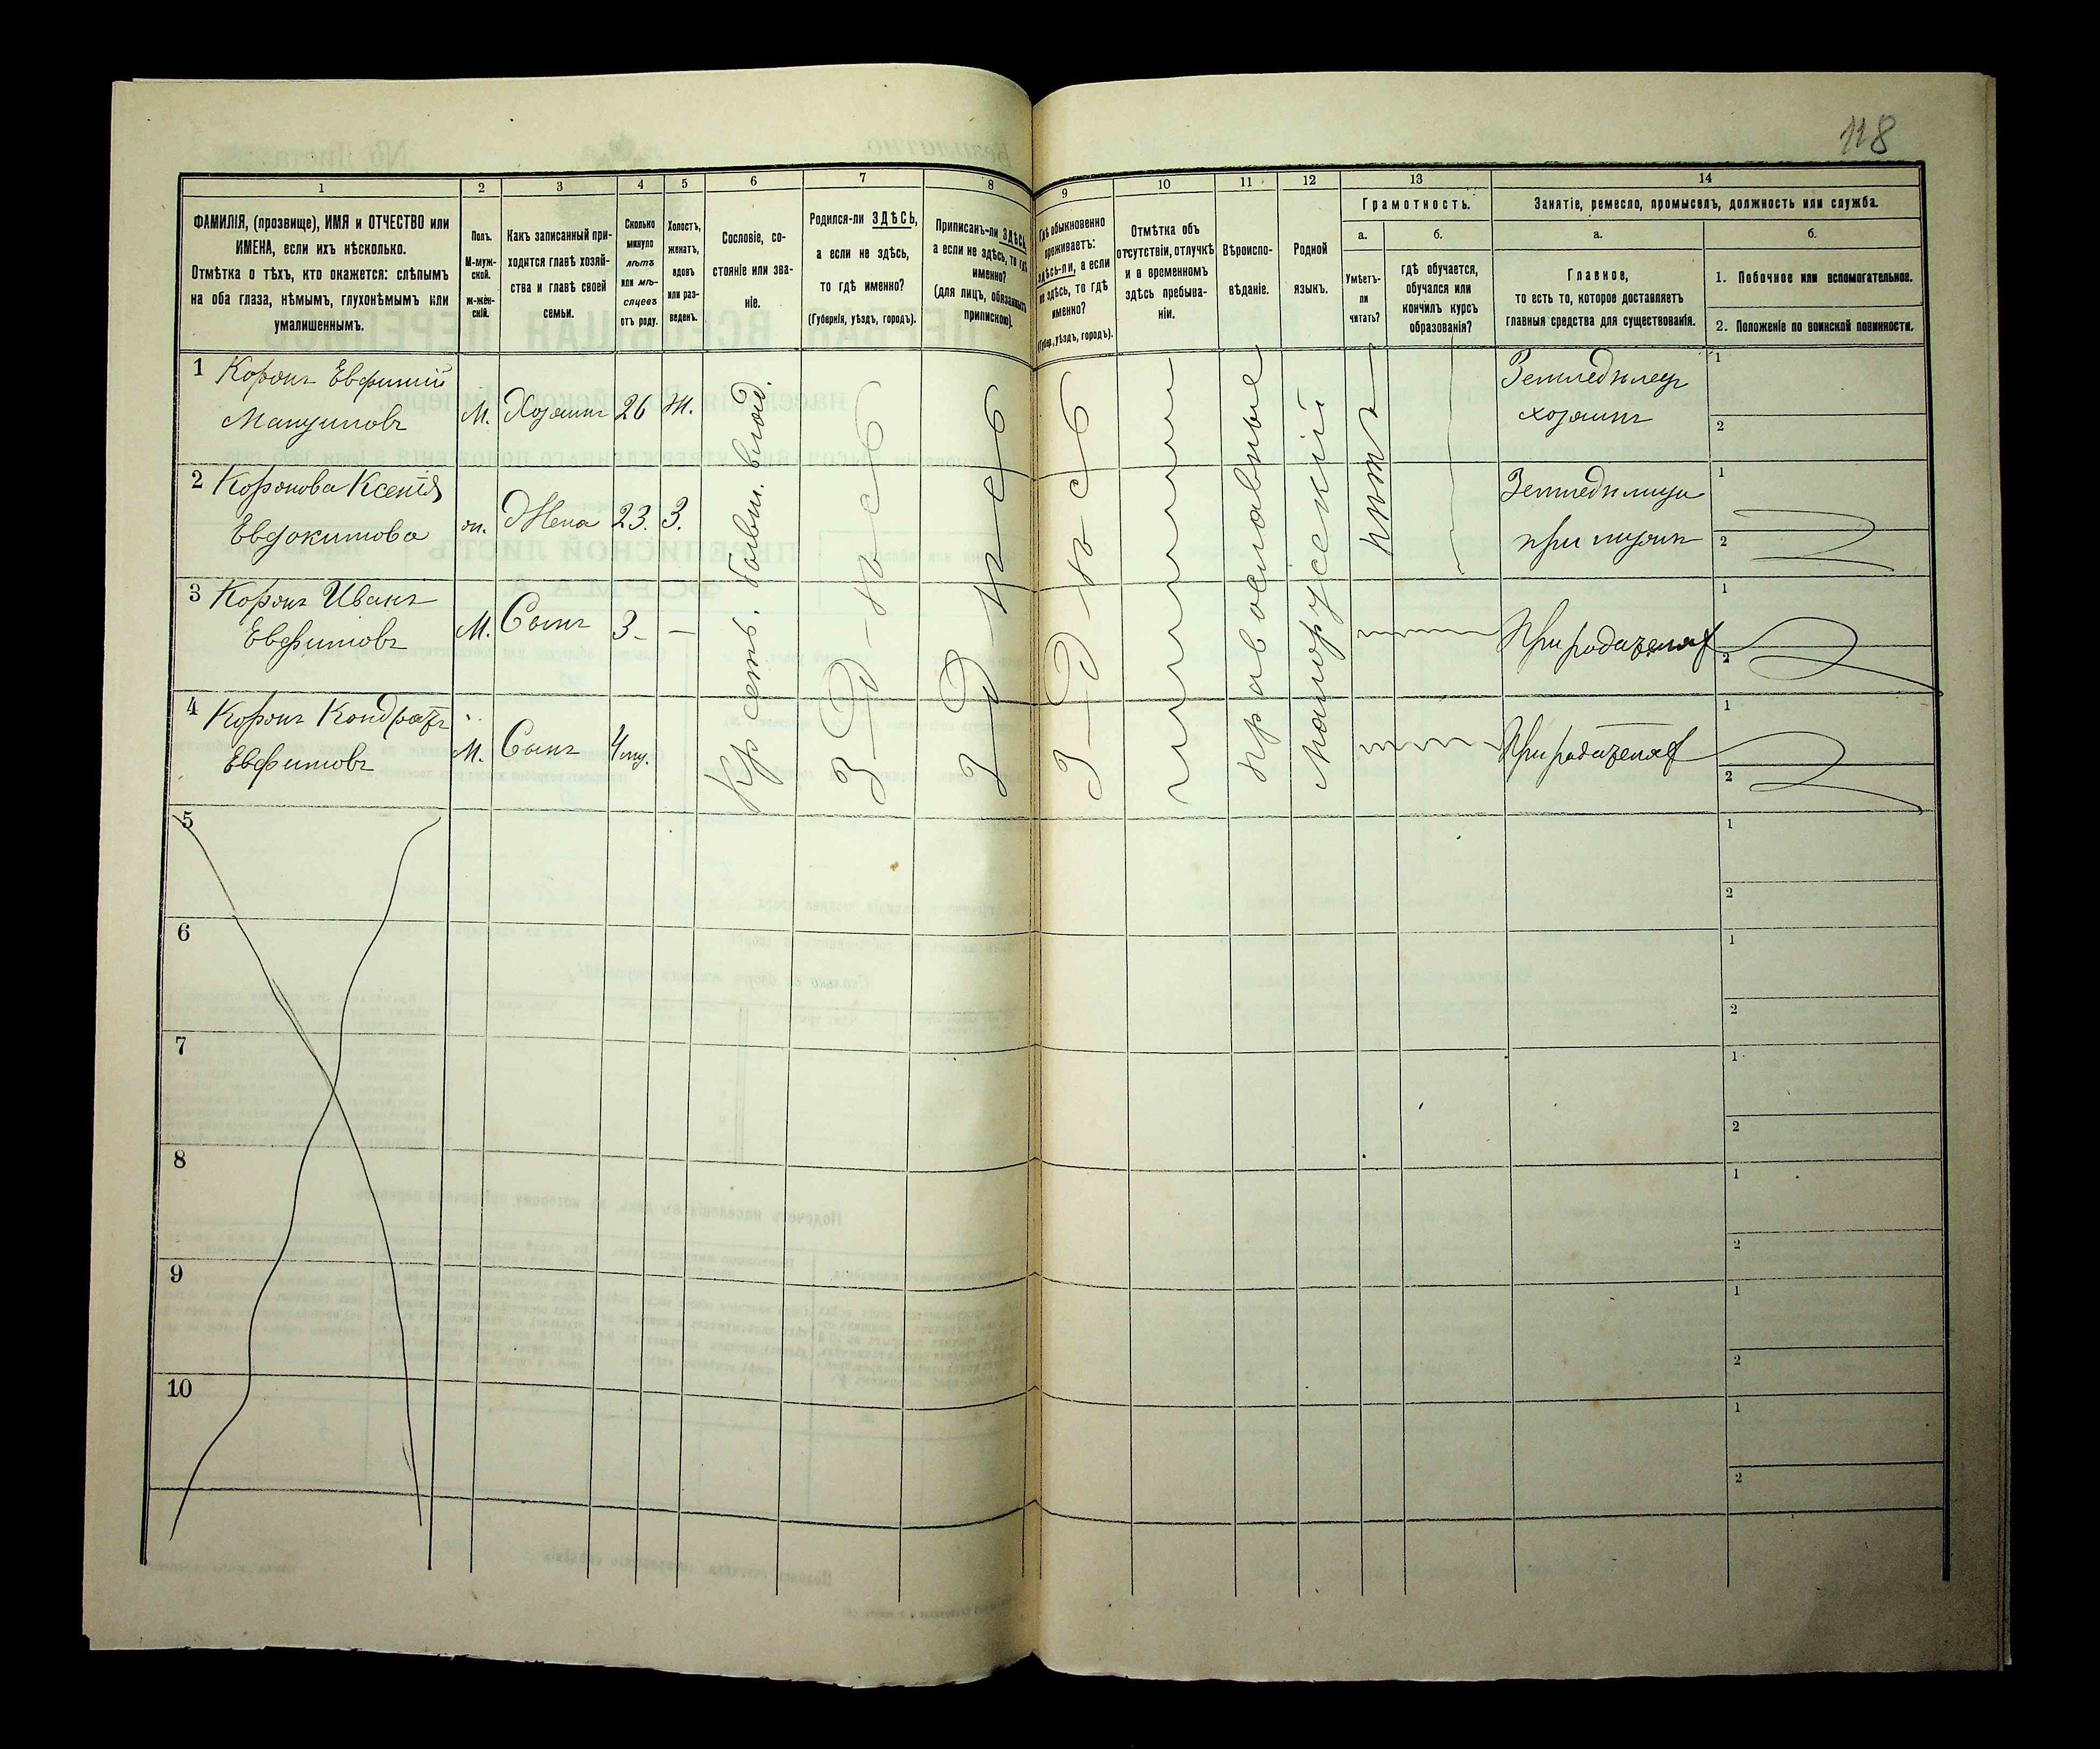 118
1 2 3 4 5 6 7 8 9 10 11 12 13 14
ФАМИЛІЯ, (прозвище), ИМЯ и ОТЧЕСТВО или
ИМЕНА, если ихъ нѣсколько.
Отмѣтка о тѣхъ, кто окажется: слѣпымъ
на оба глаза, нѣмымъ, глухонѣмымъ или
умалишеннымъ.
Полъ.
М-муж-
ской.
ж-жен-
скій.
Какъ записанный при-
ходится главѣ хозяй-
ства и главѣ своей
семьи.
Сколько
минуло
лѣтъ
или мѣ-
сяцевъ
отъ роду.
Холостъ,
женатъ,
вдовъ
или раз-
веденъ.
Сословіе, со-
стояніе или зва-
ніе.
Родился-ли ЗДѢСЬ,
а если не здѣсь,
то гдѣ именно?
(Губернія, уѣздъ, городъ).
Приписанъ-ли ЗДѢСЬ,
а если не здѣсь, то гдѣ
именно?
(для лицъ, обязанныхъ
припискою).
Гдѣ обыкновенно
проживаетъ:
здѣсь-ли, а если
не здѣсь, то гдѣ
именно?
(Губер., уѣздъ, городъ).
Отмѣтка объ
отсутствіи, отлучкѣ
и о временномъ
здѣсь пребыва-
ніи.
Вѣроиспо-
вѣданіе.
Родной
языкъ.
Грамотность.
а.
Умѣетъ-
ли
читать?
б.
гдѣ обучается,
обучался или
кончилъ курсъ
образованія?
Занятіе, ремесло, промыселъ, должность или служба.
а.
Главное,
то есть то, которое доставляетъ
главныя средства для существованія.
б.
1. Побочное или вспомогательное.
2. Положеніе по воинской повинности.
1 Коронъ Евфимій
Мануиловъ
М. Хозяинъ 26 Ж.
Земледѣлецъ
хозяинъ
1
2
2 Коронова Ксенія
Евдокимова
ж. Жена 23. З.
1
2
3 Коронъ Иванъ
Евфимовъ
М. Сынъ 3 -
При родителяхъ
1
2
4 Коронъ Кондратъ
Евфимовъ
М. Сынъ 4 мц.
При родителяхъ
1
2
З-Д-ѣ-с-ь
З-Д-ѣ-с-ь
З-Д-ѣ-с-ь
православные
Малорусскій
нѣтъ
5
1
2
6
1
2
7
1
2
8
1
2
9
1
2
10
1
2